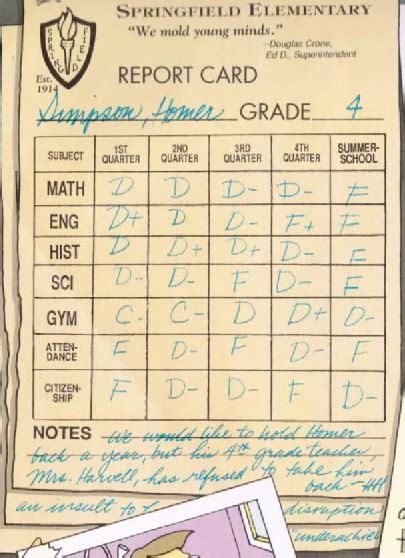 SPRINGFIELD ELEMENTARY
"We mold young minds."
-Douglas Crone,
Ed D., Superintendent
SPRING
FIELD
Est.
1914
REPORT CARD
Simpson, Homer GRADE 4
SUBJECT 1ST QUARTER 2ND QUARTER 3RD QUARTER 4TH QUARTER SUMMER-SCHOOL
MATH D D D- D- F
ENG D+ D D- F+ F
HIST D D+ D+ D- F
SCI D- D- F D- F
GYM C- C- D D+ D-
ATTEN-DANCE F D- F D- F
CITIZEN-SHIP F D- D- F D-
NOTES We would like to hold Homer
back a year, but his 4th grade teacher,
Mrs. Harvell, has refused to take him
back - HH
an insult to disruption
"underachie